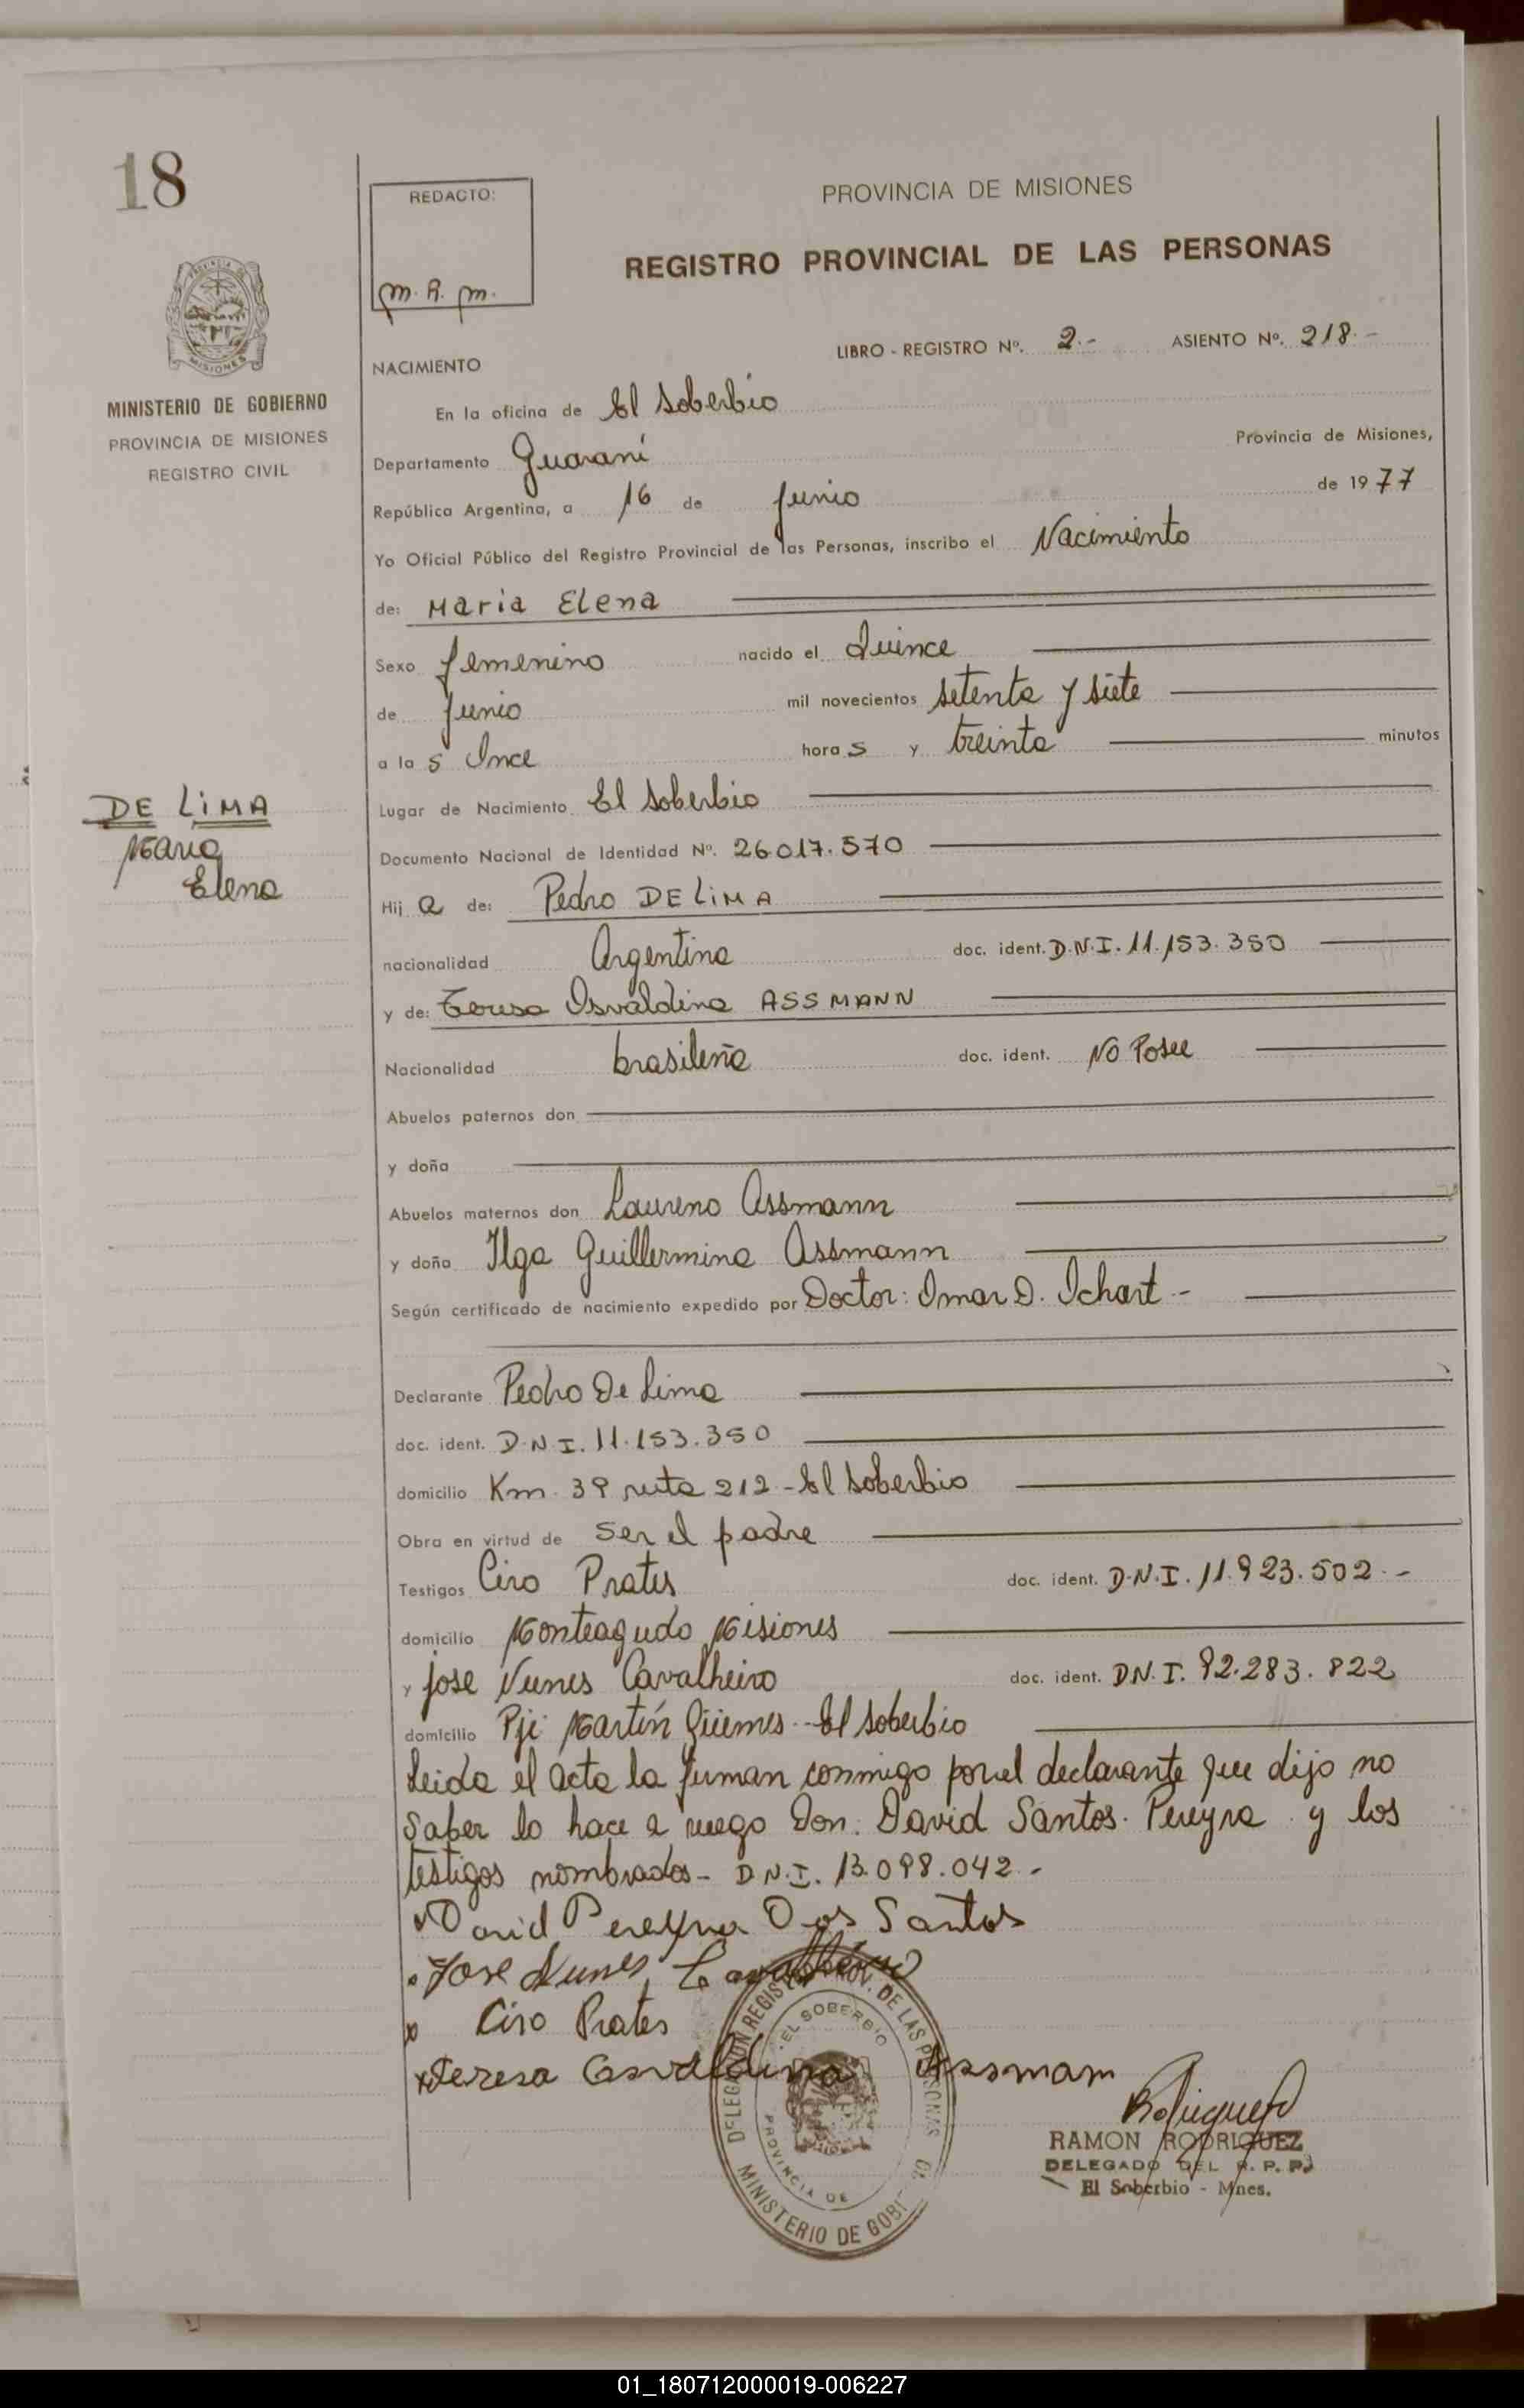 18
REDACTO:
M. R. M.
PROVINCIA DE MISIONES
REGISTRO PROVINCIAL DE LAS PERSONAS
MINISTERIO DE GOBIERNO
PROVINCIA DE MISIONES
REGISTRO CIVIL
LIBRO - REGISTRO Nº. 2.- ASIENTO Nº. 218.-
NACIMIENTO
En la oficina de El Soberbio
Departamento Guaraní Provincia de Misiones,
República Argentina, a 16 de Junio de 1977
Yo Oficial Público del Registro Provincial de las Personas, inscribo el Nacimiento
de: Maria Elena
Sexo femenino nacido el Quince
de Junio mil novecientos setenta y siete
a las Once horas y treinta minutos
Lugar de Nacimiento El Soberbio
DE LIMA
Maria
Elena
Documento Nacional de Identidad Nº. 26.017.570
Hija de: Pedro DE LIMA
nacionalidad Argentina doc. ident. D.N.I. 11.153.350
y de: Teresa Osvaldina ASSMANN
Nacionalidad brasileña doc. ident. NO Posee
Abuelos paternos don
y doña
Abuelos maternos don Laureno Assmann
y doña Ilga Guillermina Assmann
Según certificado de nacimiento expedido por Doctor: Omar D. Ichart -
Declarante Pedro De Lima
doc. ident. D.N.I. 11.153.350
domicilio Km. 39 ruta 212 - El Soberbio
Obra en virtud de ser el padre
Testigos Ciro Prates doc. ident. D.N.I. 11.923.502.-
domicilio Monteagudo Misiones
y Jose Nunes Cavalheiro doc. ident. D.N.I. 92.283.822
domicilio Pje Martín Güemes - El Soberbio
Leida el acta la firman conmigo por el declarante que dijo no
saber lo hace a ruego Don: David Santos Pereyra y los
testigos nombrados - D.N.I. 13.098.042.-
David Pereyra Dos Santos
Jose Nunes Cavalheiro
Ciro Prates
Teresa Osvaldina Assmam
DELEGACION REGISTRO PROV. DE LAS PERSONAS
EL SOBERBIO
PROVINCIA DE
MINISTERIO DE GOBI
RAMON RODRIGUEZ
DELEGADO DEL R. P. P.
El Soberbio - Mnes.
01_180712000019-006227